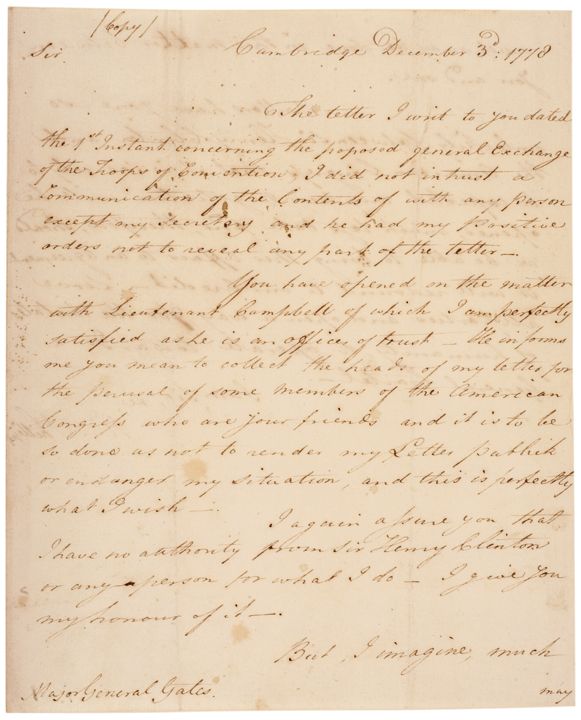 (Copy)
Sir
Cambridge December 3d: 1778
The letter I writ to you dated
the 1st Instant concerning the proposed general Exchange
of the Troops of Convention I did not intrust a
Communication of the Contents of with any person
except my Secretary and he had my positive
orders not to reveal any part of the letter —
You have opened on the matter
with Lieutenant Campbell of which I am perfectly
satisfied as he is an officer of trust — He informs
me you mean to collect the heads of my letter for
the perusal of some members of the American
Congress who are your friends and it is to be
so done as not to render my Letter publik
or endanger my situation, and this is perfectly
what I wish —.
I again assure you that
I have no authority from Sir Henry Clinton
or any person for what I do — I give you
my honour of it —.
But I imagine, much
Major General Gates.
may